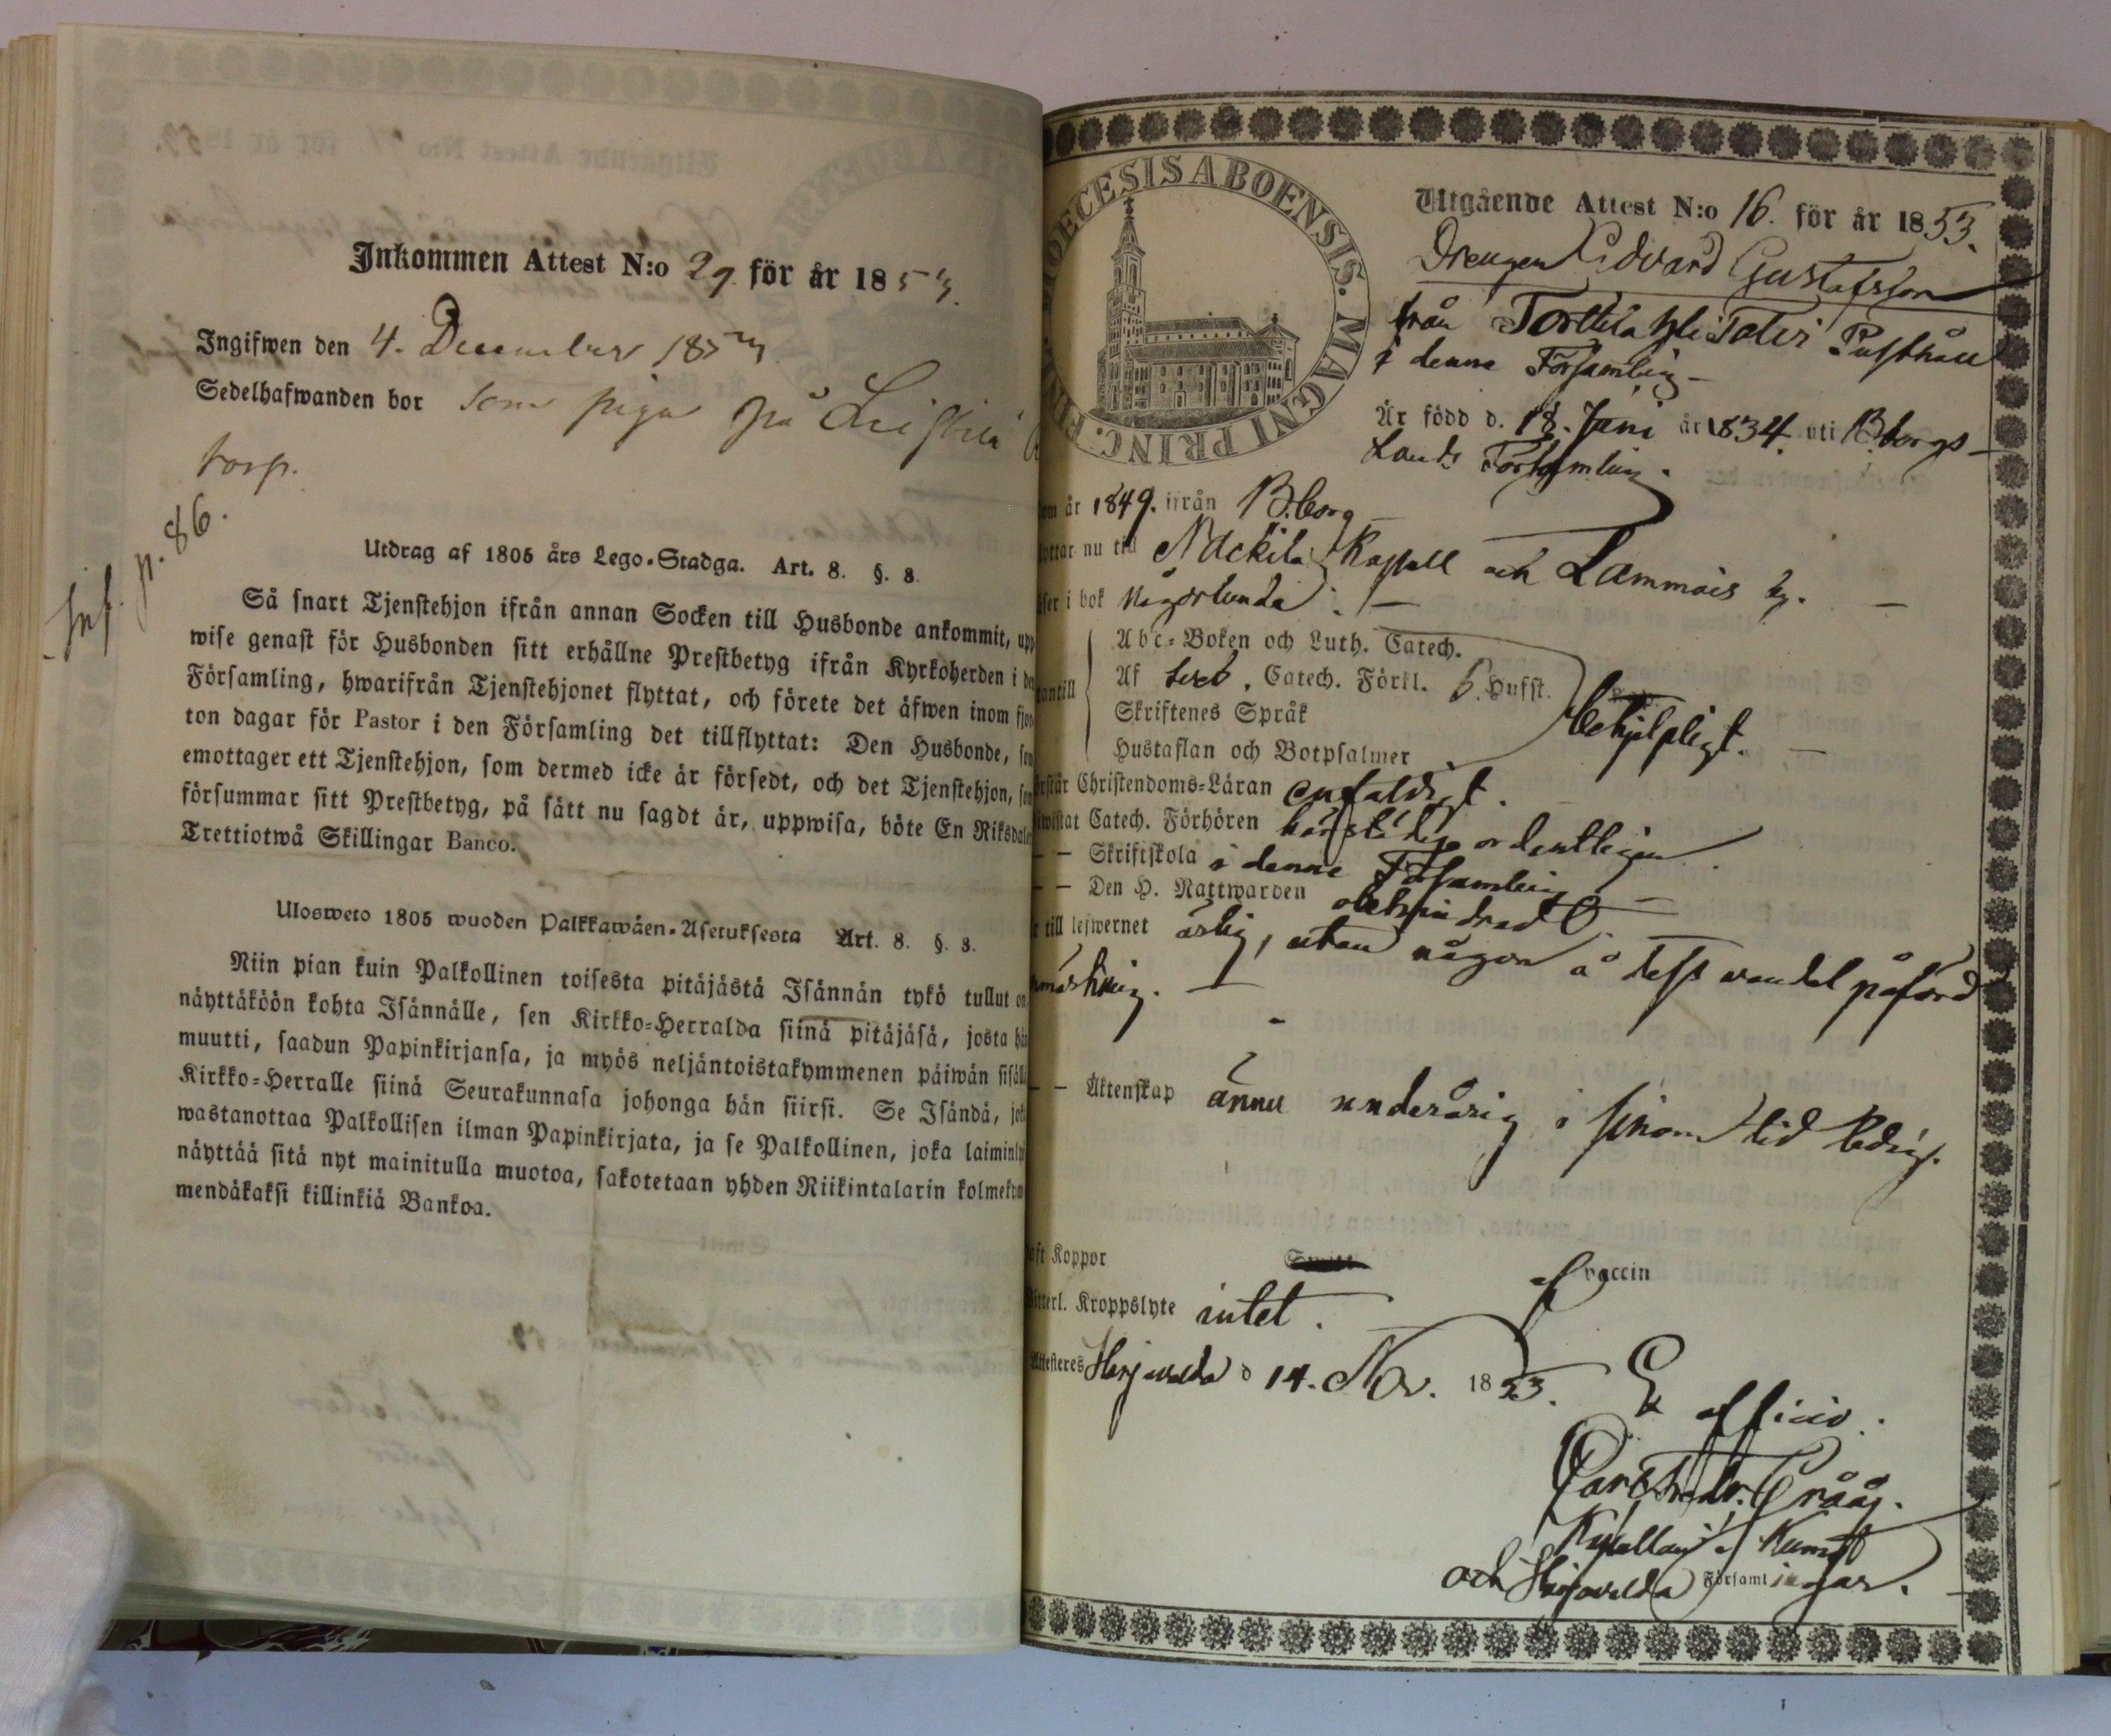 Inkommen Attest N:o 29 för år 1853.
Ingifwen den 4. December 1853
Sedelhafwanden bor som piga på
torp.
Inf. p. 86.
Utdrag af 1805 års Lego-Stadga. Art. 8. §. 8.
Så snart Tjenstehjon ifrån annan Socken till Husbonde ankommit, upp
wise genast för Husbonden sitt erhållne Prestbetyg ifrån Kyrkoherden i den
Församling, hwarifrån Tjenstehjonet flyttat, och förete det äfwen inom fjor
ton dagar för Pastor i den Församling det tillflyttat: Den Husbonde, som
emottager ett Tjenstehjon, som dermed icke är försedt, och det Tjenstehjon, som
försummar sitt Prestbetyg, på sätt nu sagdt är, uppwisa, böte En Riksdaler
Trettiotwå Skillingar Banco.
Ulosweto 1805 wuoden Palkkawäen-Asetuksesta Art. 8. §. 8.
Niin pian kuin Palkollinen toisesta pitäjästä Isännän tykö tullut on
näyttäköön kohta Isännälle, sen Kirkko-Herralda siinä pitäjäsä, josta hän
muutti, saadun Papinkirjansa, ja myös neljäntoistakymmenen päiwän sisällä
Kirkko-Herralle siinä Seurakunnasa johonga hän siirsi. Se Isändä, joka
wastanottaa Palkollisen ilman Papinkirjata, ja se Palkollinen, joka laiminlyö
näyttää sitä nyt mainitulla muotoa, sakotetaan yhden Riikintalarin kolmekym
mendäkaksi killinkiä Bankoa.
DIOECESIS ABOENSIS. MAGNI PRINC. FINL.
Utgående Attest N:o 16. för år 1853.
Drengen Edvard Gustafsson
från Torttila by Taler Rusthåll
i denna Församling
Är född d. 18. Juni år 1834. uti B:borgs
Lands Församling.
om år 1849. ifrån B:borg
yttar nu till Nackila Kapell och Lammais by.
äser i bok någorlunda.
utantill
Abc-Boken och Luth. Catech.
Af Sveb. Catech. Förkl. 6. Hufst.
Skriftenes Språk
Hustaflan och Botpsalmer
behjelpligt.
örstår Christendoms-Läran enfaldigt.
iwistat Catech. Förhören härstädes ordentligen
— — Skriftskola i denna Församling
— — Den H. Nattwarden obehindrad
r till lefwernet ärlig, utan någon å dess vandel påförd
anmärkning.
— — Äktenskap ännu underårig i sinom tid ledig.
aft Koppor af vaccin
itterl. Kroppslyte intet.
Attesteres Harjavalda d 14. Nov. 1853. Ex officio.
Carl Fredr. Grååg.
Kapellan i Kumo
och Harjavalda Församlingar.